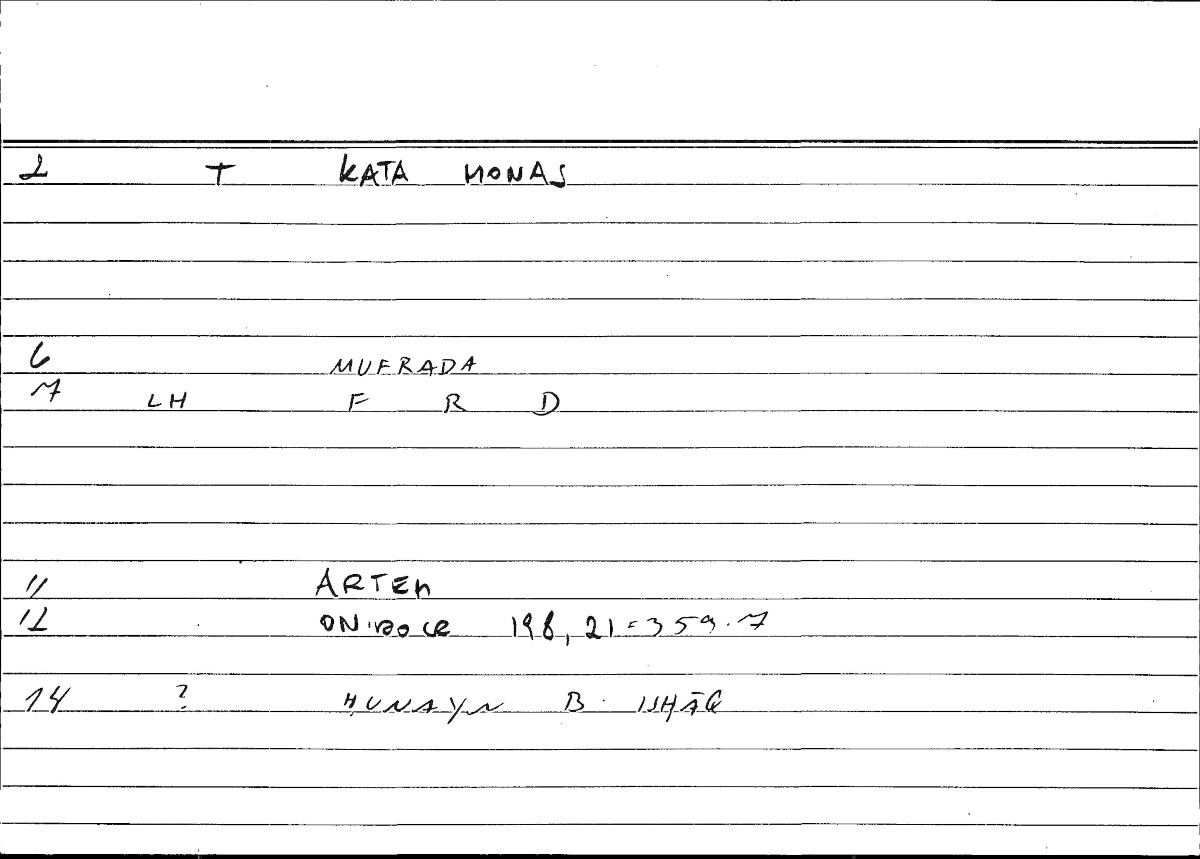 2 T KATA MONAS
6 MUFRADA
7 LH F R D
11 ARTEM
12 ONIROCR 198, 21 = 359.7
14 ? ḤUNAYN B. ISḤĀQ